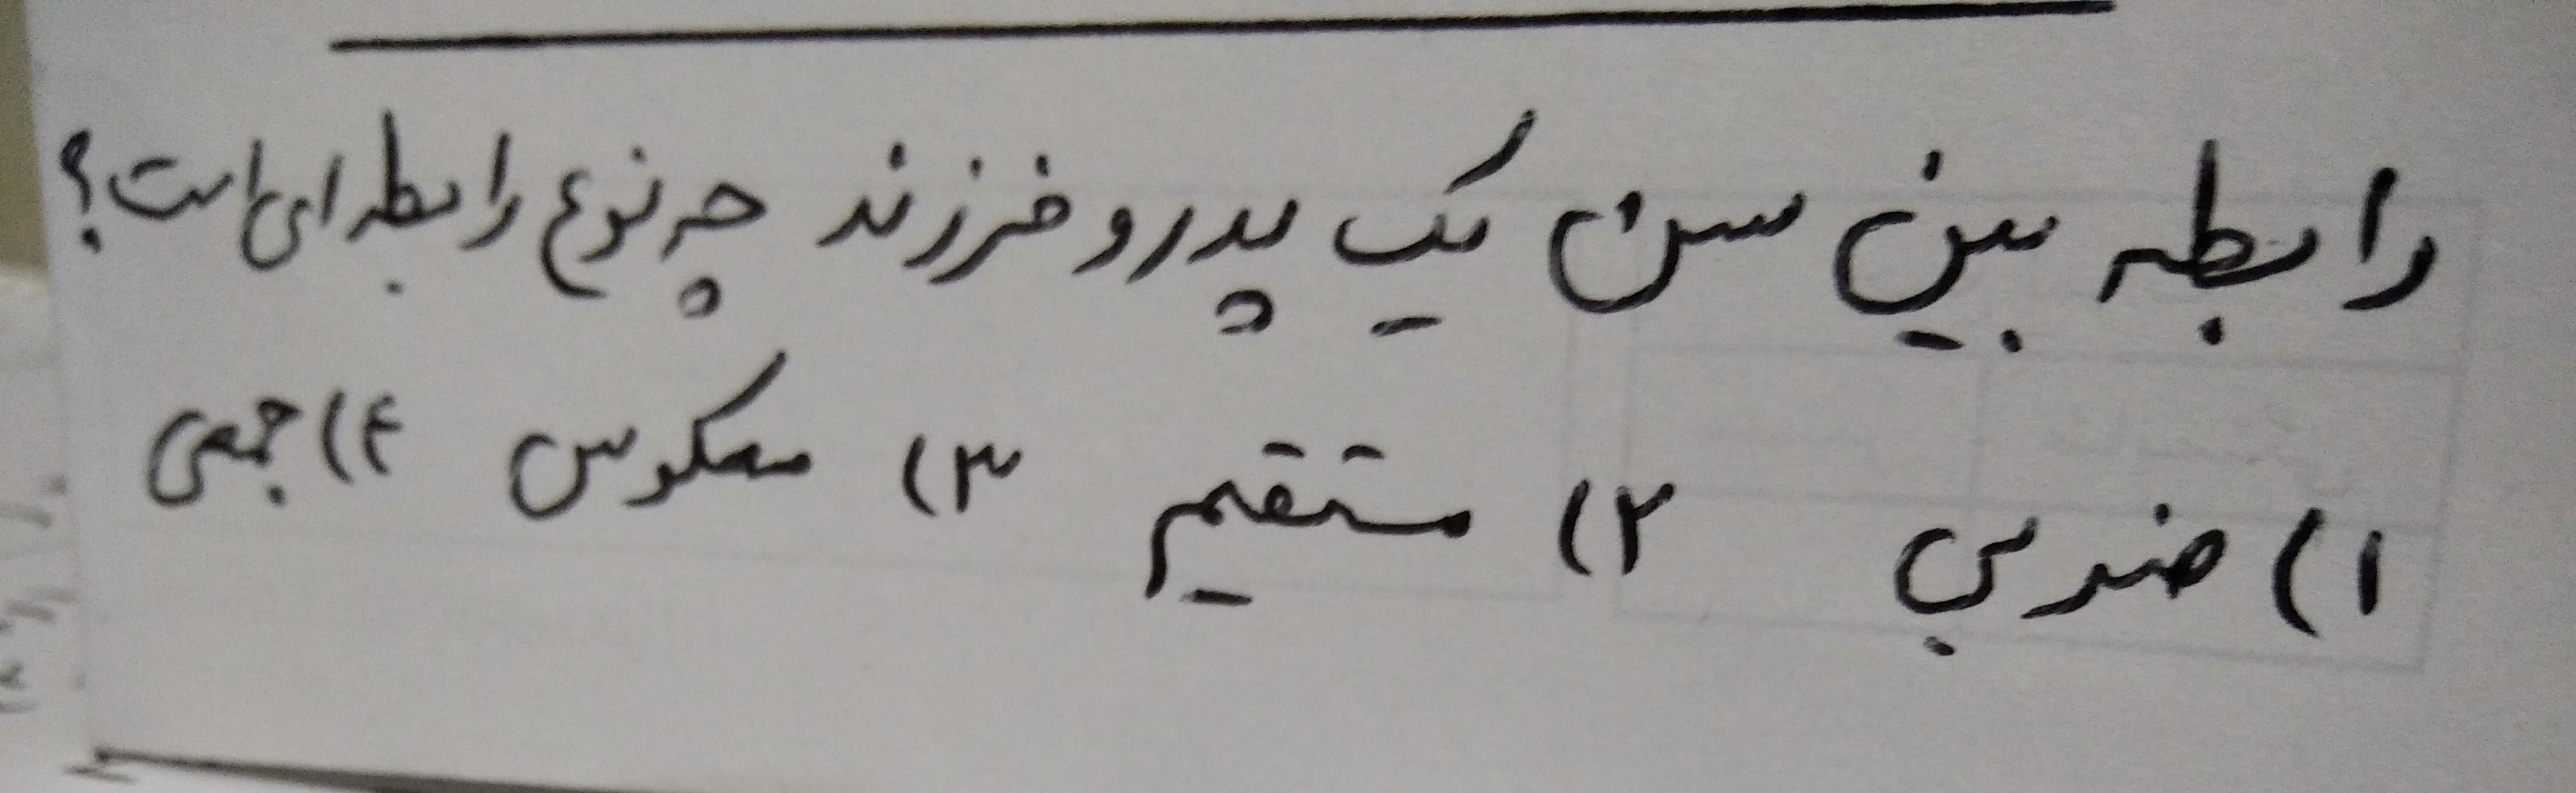 رابطه بین سن یک پدر و فرزند چه نوع رابطه ای است؟
۱) ضربی ۲) مستقیم ۳) معکوس ۴) جمعی